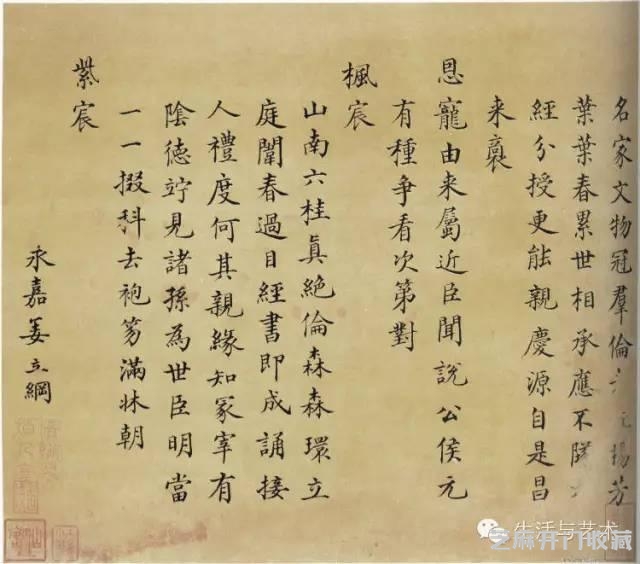 名家文物冠羣倫揚芳
葉葉春累世相承應不隊六
經分授更能親慶源自是昌
来裔
恩寵由来屬近臣聞說公侯元
有種争看次第對
楓宸
山南六桂眞絶倫森森環立
庭闈春過目經書即成誦接
人禮度何其親緣知冢宰有
陰德竚見諸孫為世臣明當
一一掇科去袍笏滿牀朝
紫宸
永嘉姜立綱
生活与艺术
芝麻开门收藏